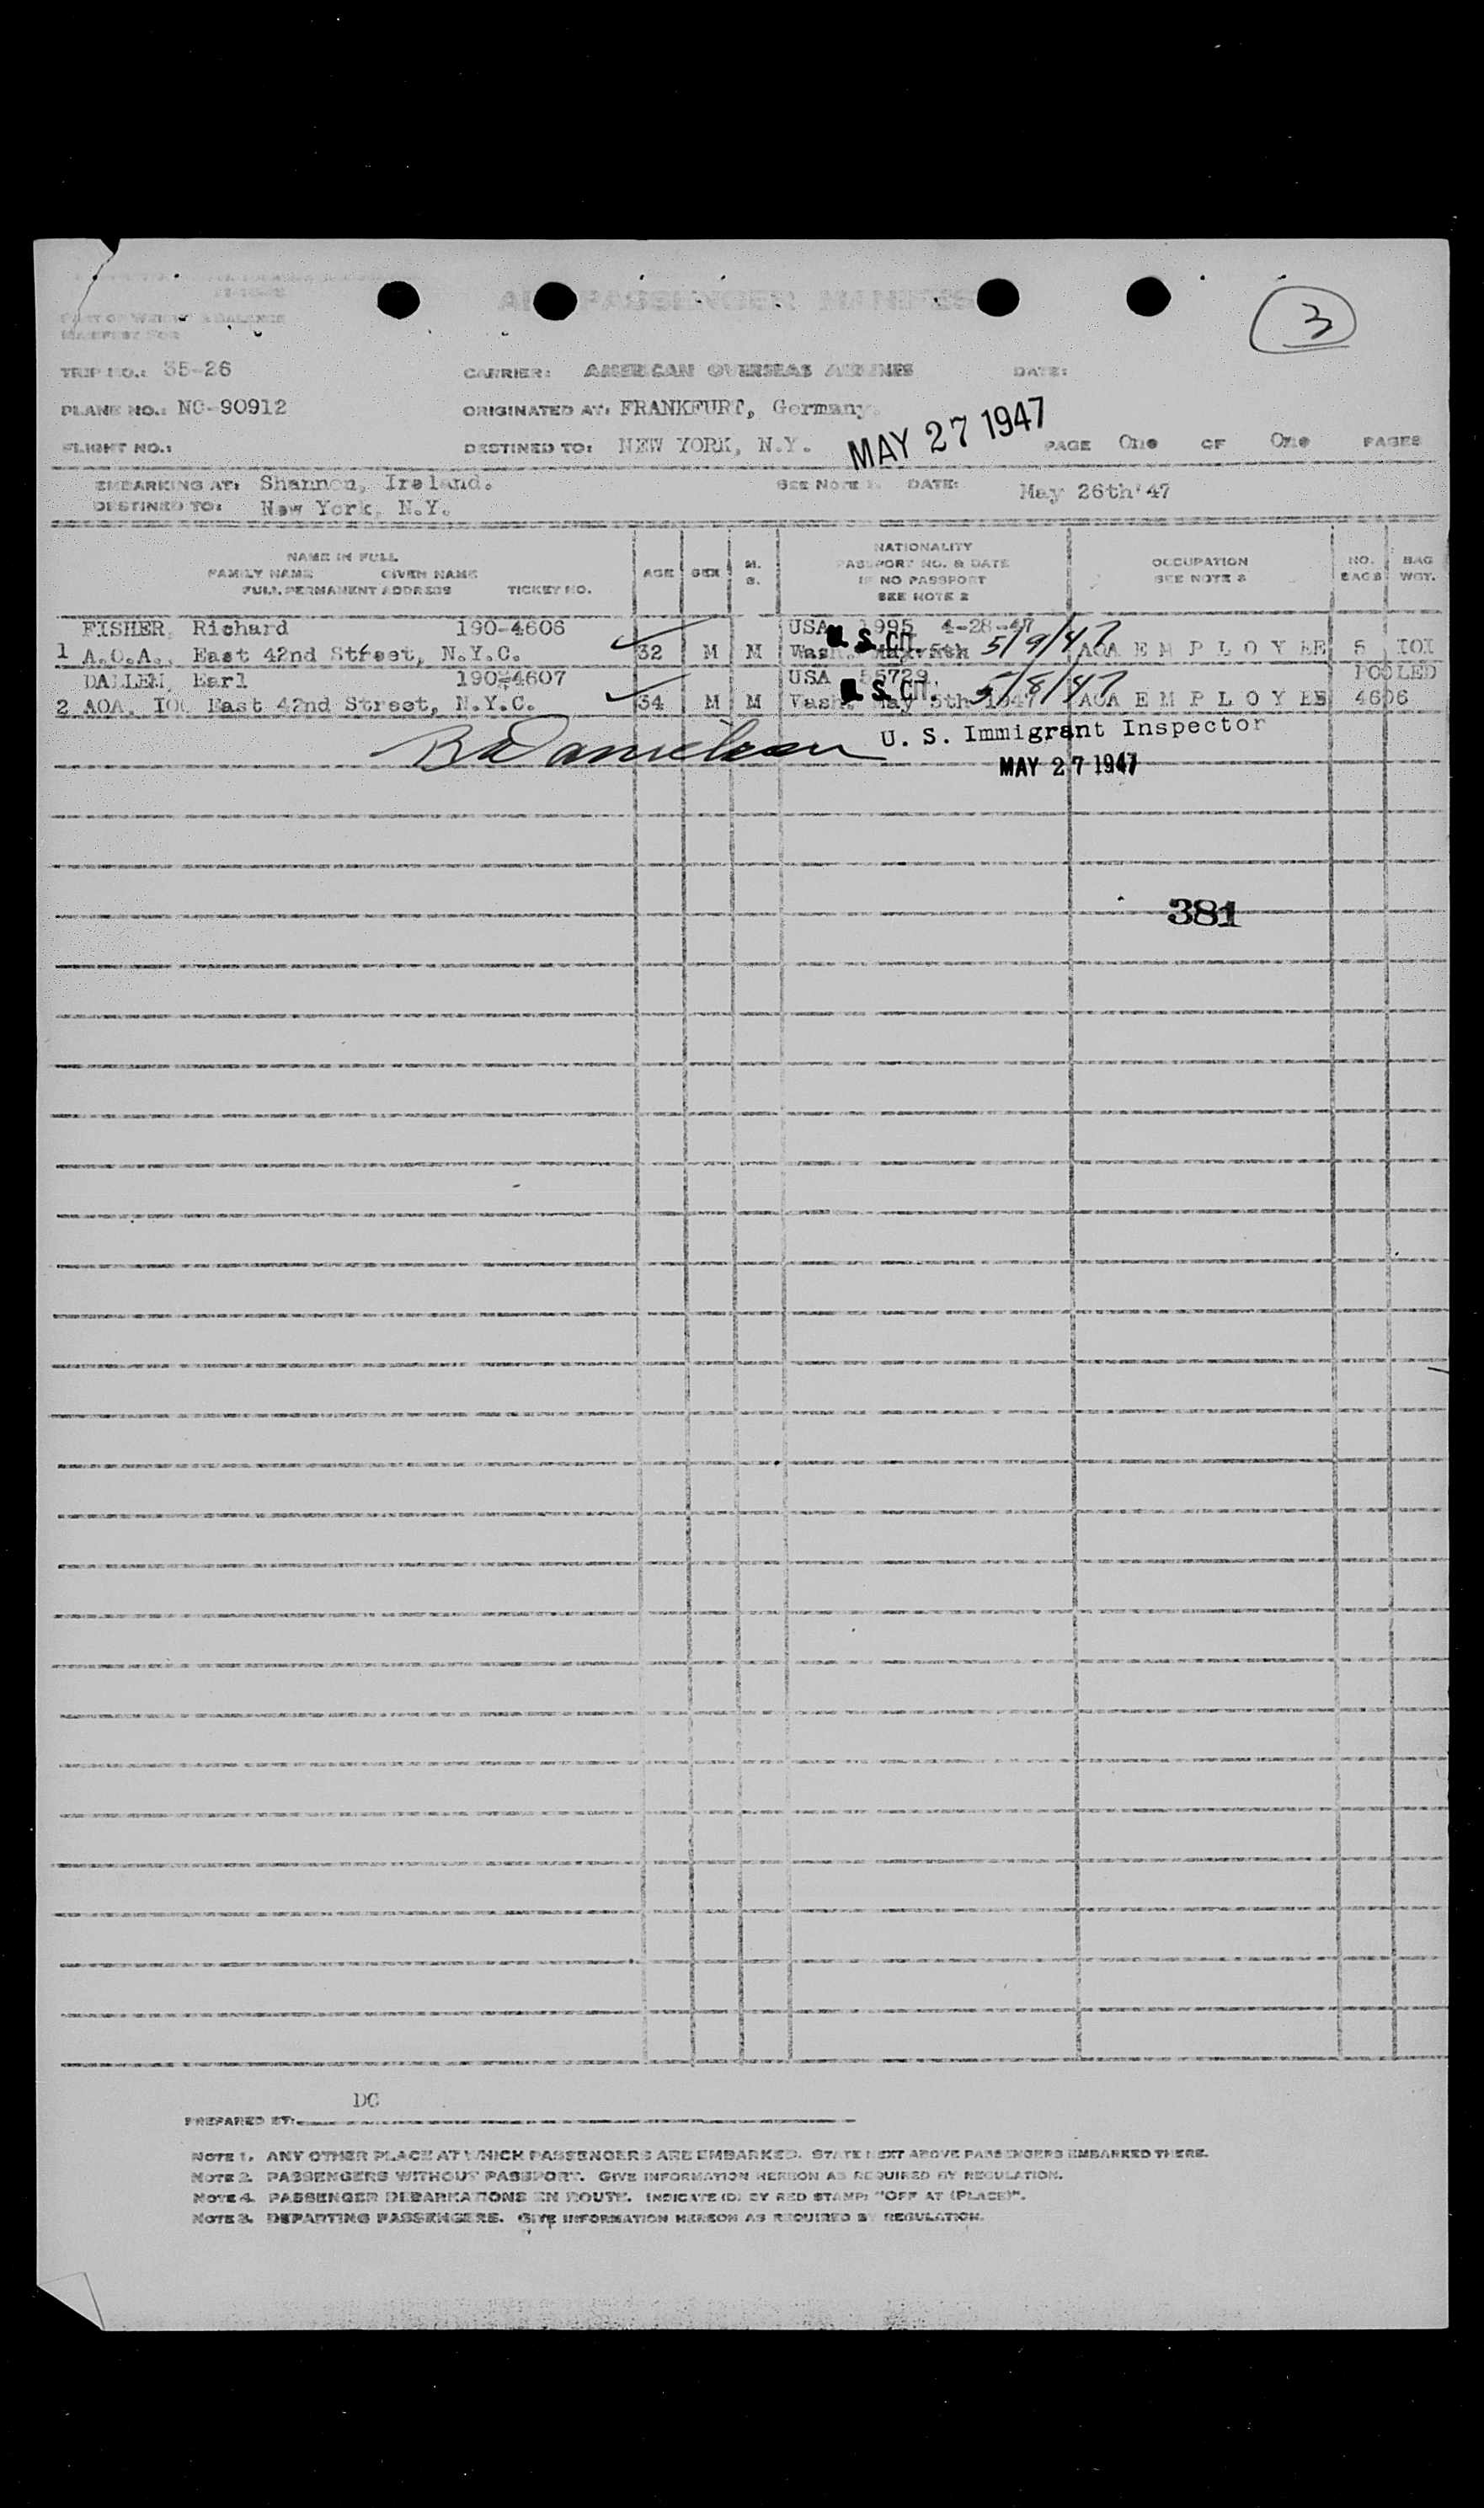 AIR PASSENGER MANIFEST
3
PART OF WEIGHT & BALANCE
MANIFEST FOR
TRIP NO.: 35-26 CARRIER: AMERICAN OVERSEAS AIRLINES DATE:
PLANE NO.: NC-90912 ORIGINATED AT: FRANKFURT, Germany.
MAY 27 1947
FLIGHT NO.: DESTINED TO: NEW YORK, N.Y. PAGE One OF One PAGES
EMBARKING AT: Shannon, Ireland. SEE NOTE 1. DATE: May 26th'47
DESTINED TO: New York, N.Y.
NAME IN FULL
FAMILY NAME GIVEN NAME
FULL PERMANENT ADDRESS TICKET NO.
AGE SEX M. S.
NATIONALITY
PASSPORT NO. & DATE
IF NO PASSPORT
SEE NOTE 2
OCCUPATION
SEE NOTE 3
NO. BAGS
BAG WGT.
FISHER, Richard 190-4606 USA 1995 4-28-47
1 A.O.A., East 42nd Street, N.Y.C. 32 M M Wash. May 5th U. S. CIT. 5/9/47 AOA E M P L O Y EE 5 IOI
DALLEM, Earl 190-4607 USA 56729 POOLED
2 AOA, IOC East 42nd Street, N.Y.C. 34 M M Wash. May 5th 1947 U. S. CIT. 5/8/47 AOA E M P L O Y EE 4606
Danielson U. S. Immigrant Inspector
MAY 27 1947
381
DC
PREPARED BY:
NOTE 1. ANY OTHER PLACE AT WHICH PASSENGERS ARE EMBARKED. STATE NEXT ABOVE PASSENGERS EMBARKED THERE.
NOTE 2. PASSENGERS WITHOUT PASSPORT. GIVE INFORMATION HEREON AS REQUIRED BY REGULATION.
NOTE 4. PASSENGER DEBARKATIONS EN ROUTE. INDICATE (D) BY RED STAMP: "OFF AT (PLACE)".
NOTE 3. DEPARTING PASSENGERS. GIVE INFORMATION HEREON AS REQUIRED BY REGULATION.